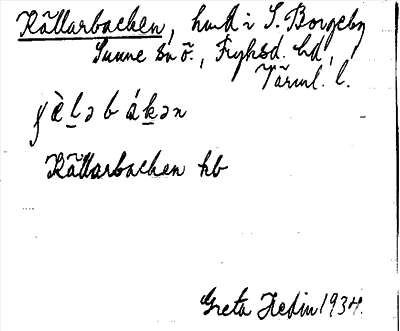 Källarbacken, hmd i S. Borgeby
Sunne sn ö., Fryksd. hd,
Värml. l.
ʃὲl̲ə b ák̲ən
Källarbacken hb
Greta Hedin 1934.